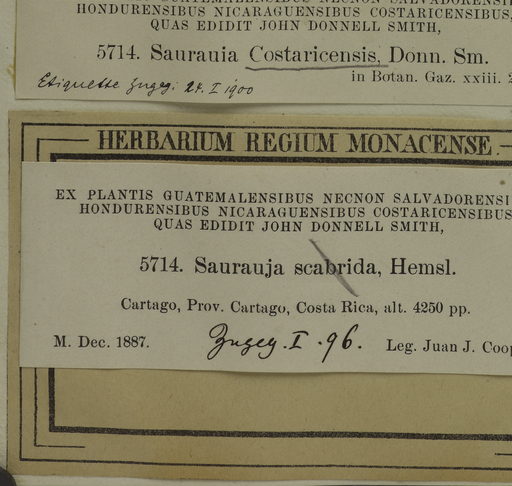 HONDURENSIBUS NICARAGUENSIBUS COSTARICENSIBUS,
QUAS EDIDIT JOHN DONNELL SMITH,
5714. Saurauia Costaricensis, Donn. Sm.
in Botan. Gaz. xxiii. 2
Etiquette Zugeg. 24. I 1900
HERBARIUM REGIUM MONACENSE
EX PLANTIS GUATEMALENSIBUS NECNON SALVADORENSI
HONDURENSIBUS NICARAGUENSIBUS COSTARICENSIBUS
QUAS EDIDIT JOHN DONNELL SMITH,
5714. Saurauja scabrida, Hemsl.
Cartago, Prov. Cartago, Costa Rica, alt. 4250 pp.
M. Dec. 1887. Zugeg. I. 96. Leg. Juan J. Coop